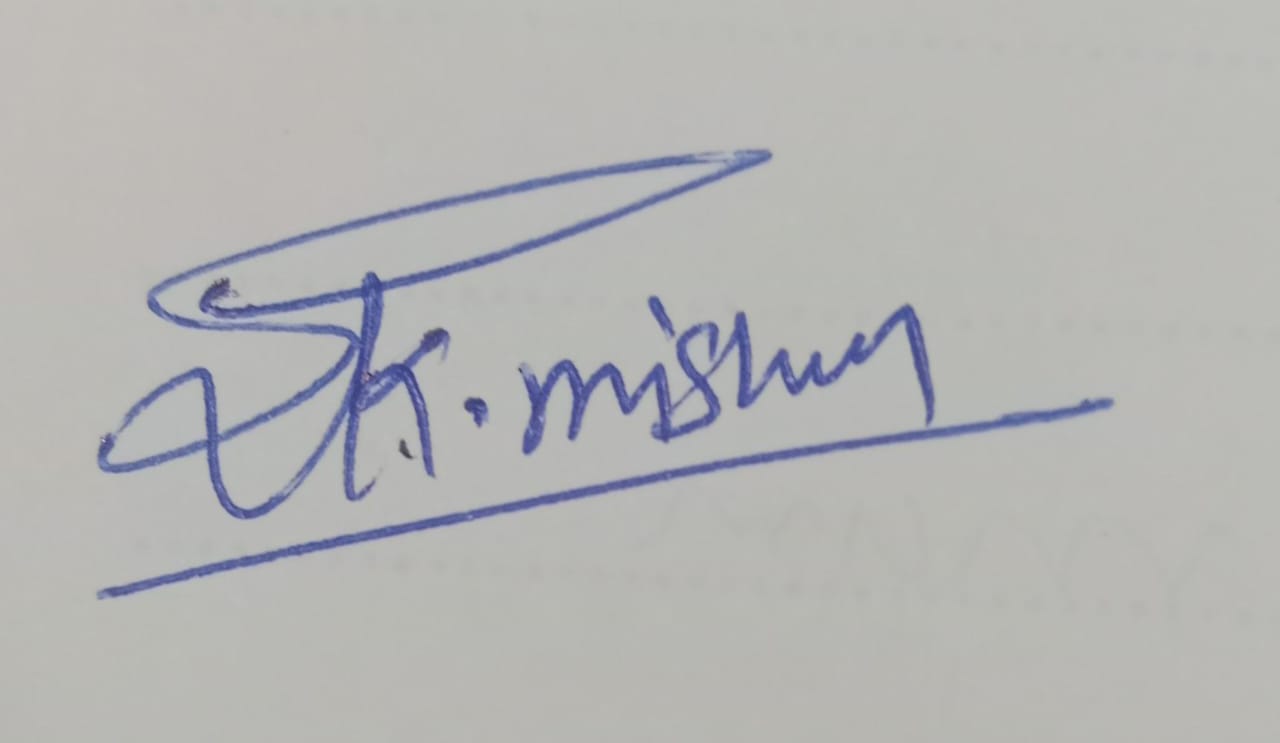 SK. mishra